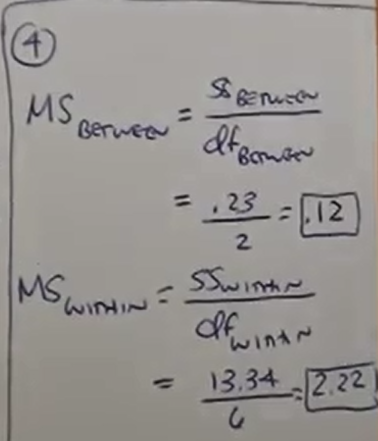 4
MS BETWEEN = SS BETWEEN / df BETWEEN
= .23 / 2 = .12
MS WITHIN = SS WITHIN / df WITHIN
= 13.34 / 6 = 2.22